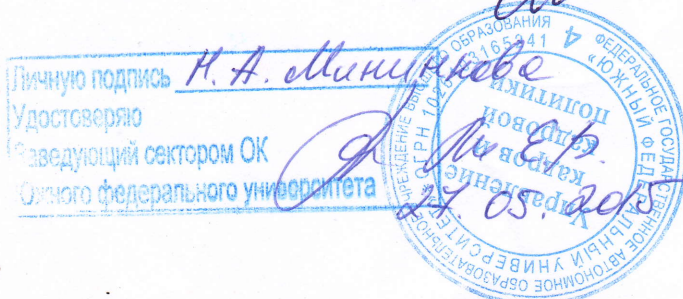 Личную подпись Н. А. Мининкова
Удостоверяю
Заведующий сектором ОК
Южного федерального университета
27. 05. 2015
ФЕДЕРАЛЬНОЕ ГОСУДАРСТВЕННОЕ АВТОНОМНОЕ ОБРАЗОВАТЕЛЬНОЕ УЧРЕЖДЕНИЕ ВЫСШЕГО ОБРАЗОВАНИЯ
«ЮЖНЫЙ ФЕДЕРАЛЬНЫЙ УНИВЕРСИТЕТ»
ОГРН
4
Управление
кадров и
кадровой
политики